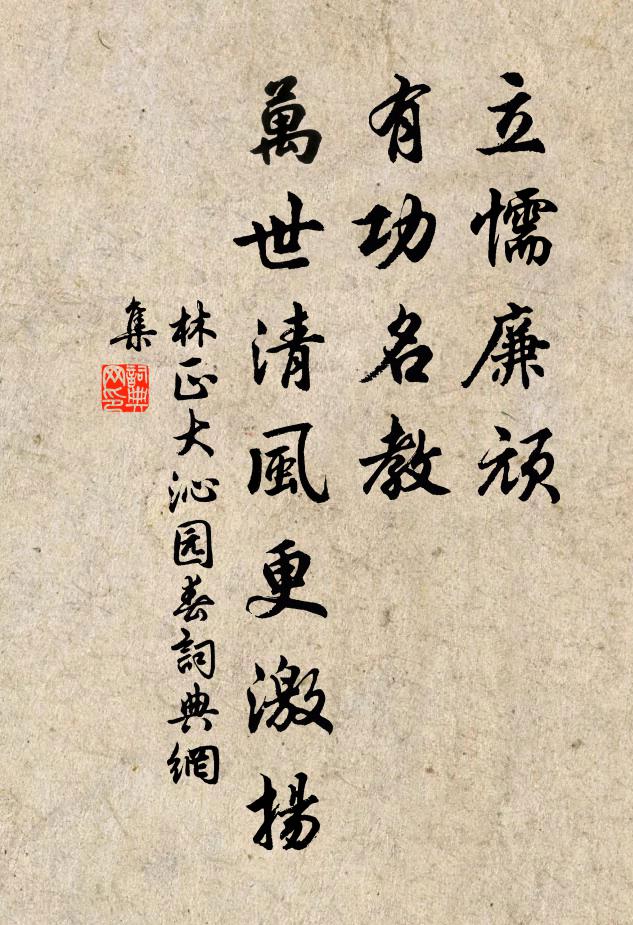 立懦廉頑
有功名教
萬世清風更激揚
林正大沁园春詞典網
集
詞典
网印